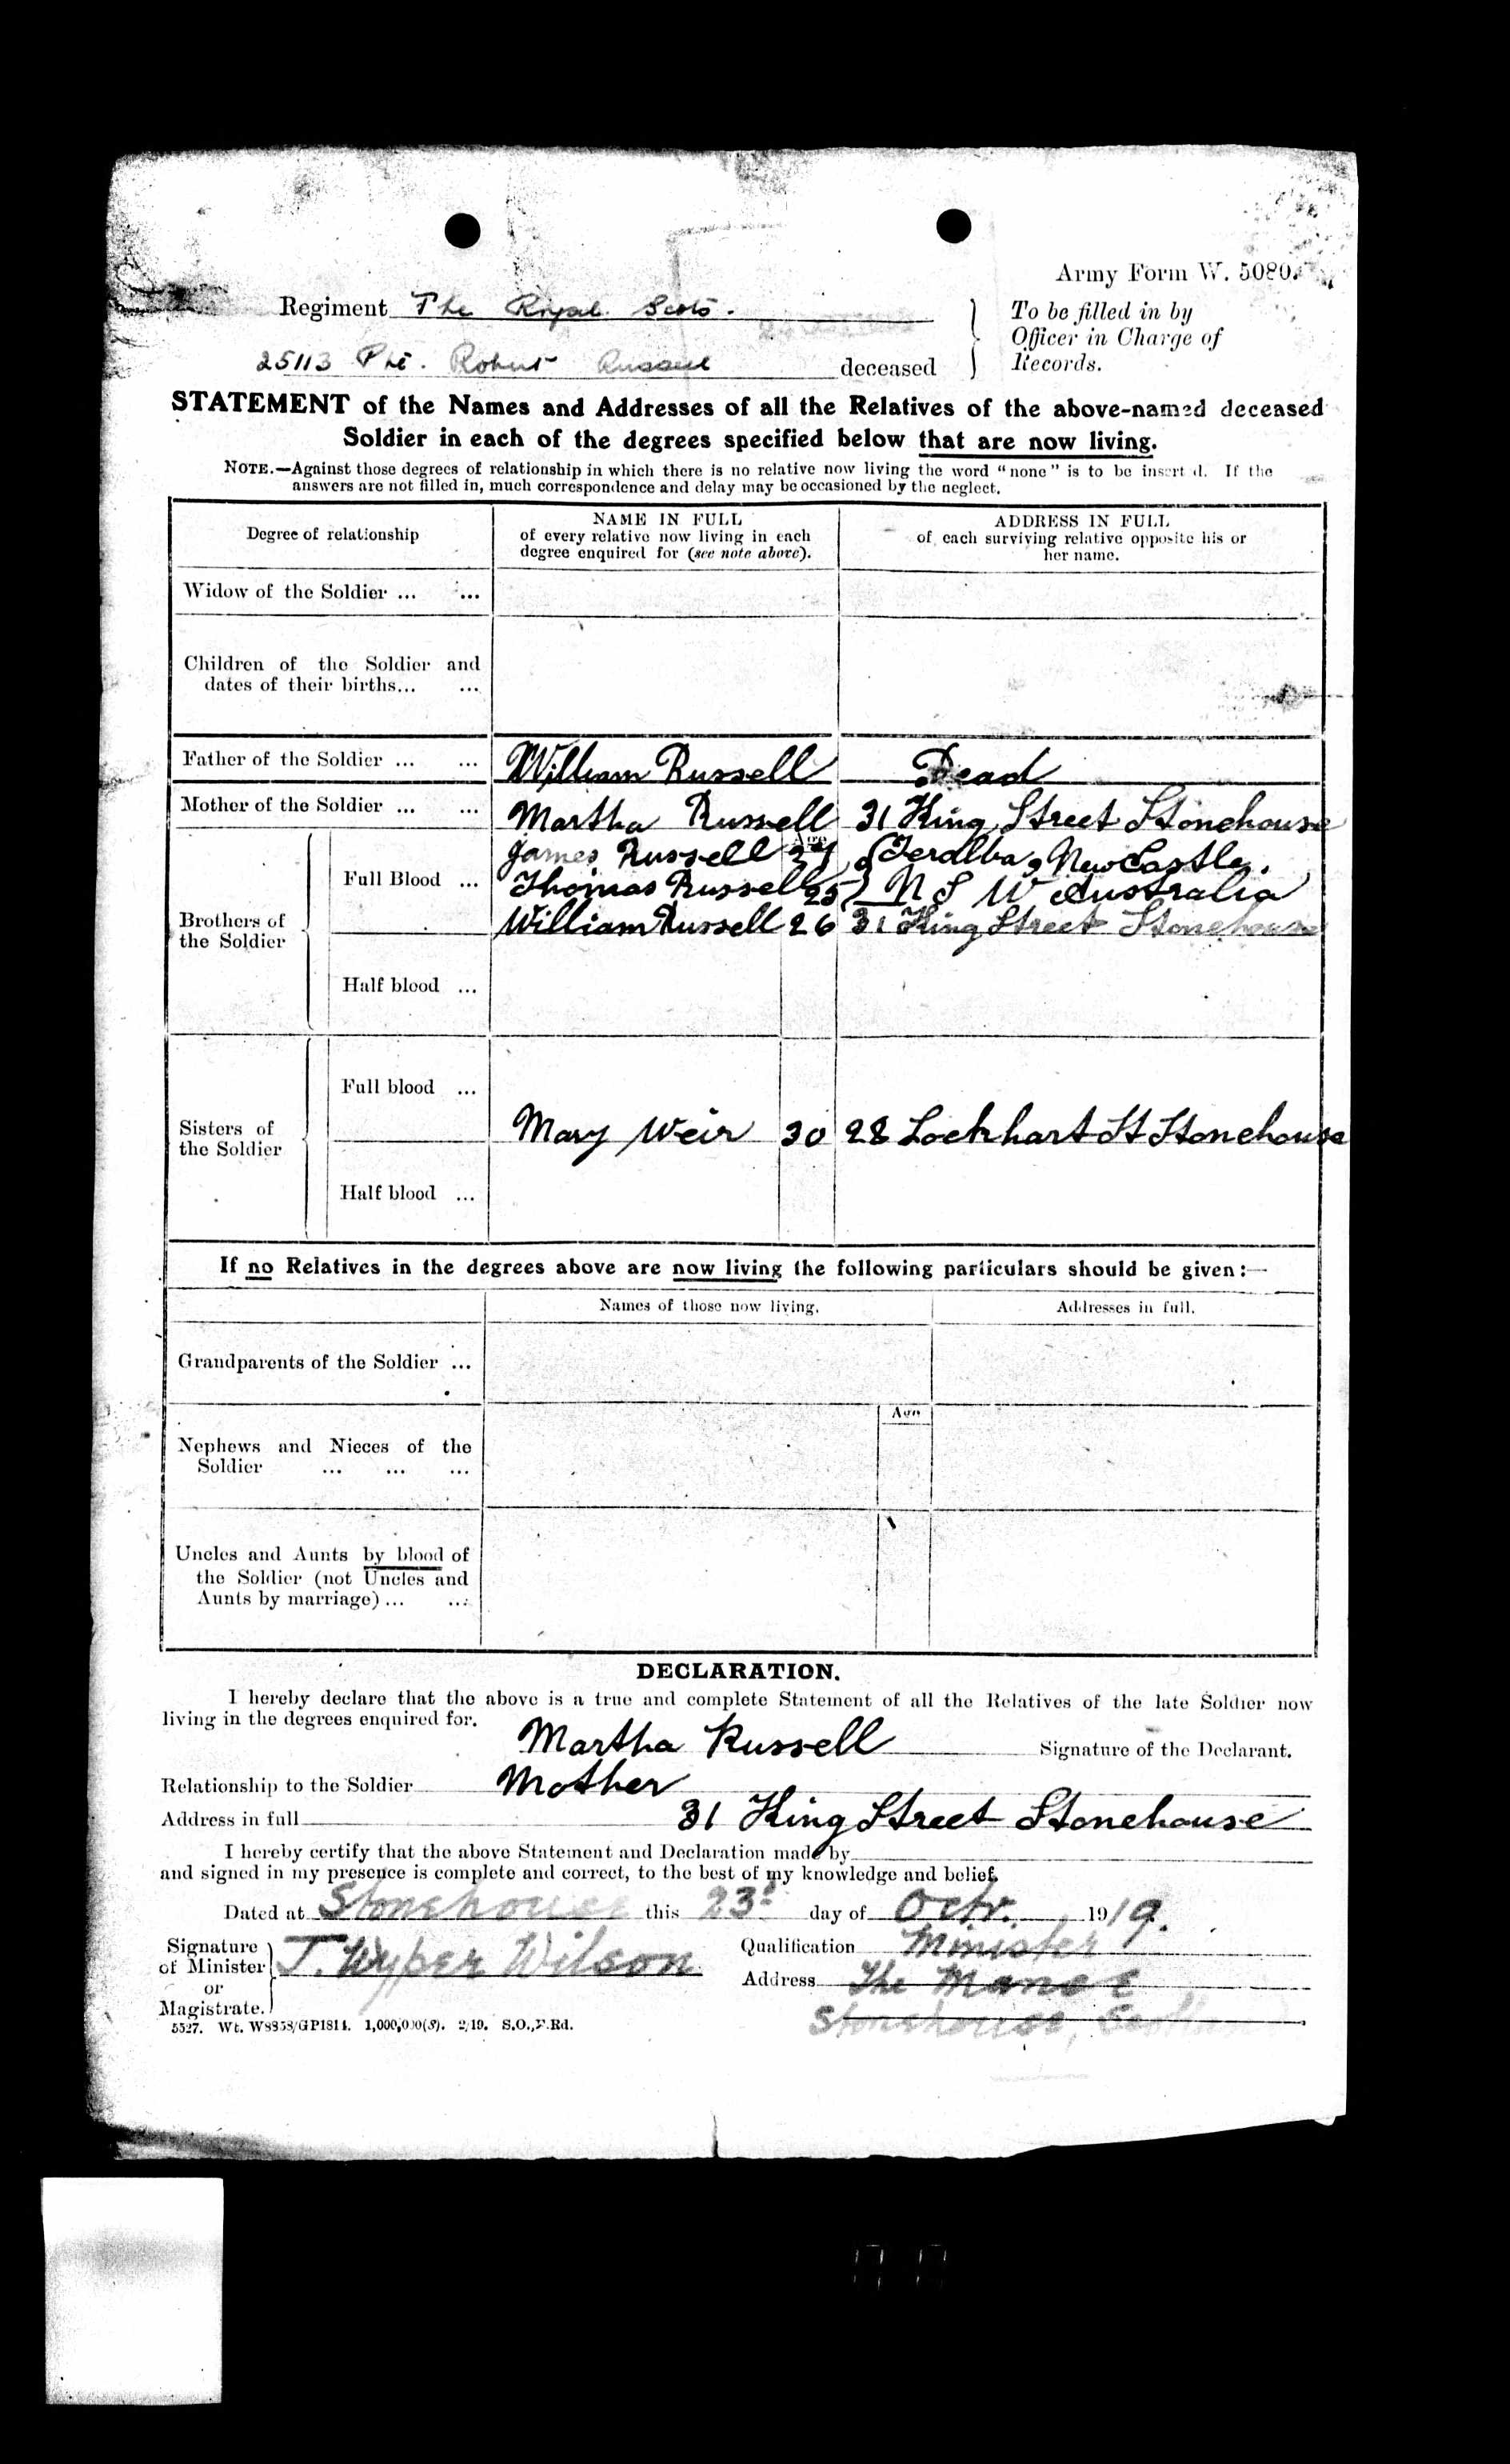 Army Form W. 5080.
Regiment The Royal Scots.
To be filled in by
Officer in Charge of
Records.
25113 Pte. Robert Russell deceased
STATEMENT of the Names and Addresses of all the Relatives of the above-named deceased
Soldier in each of the degrees specified below that are now living.
NOTE.—Against those degrees of relationship in which there is no relative now living the word "none" is to be insert d. If the
answers are not filled in, much correspondence and delay may be occasioned by the neglect.
Degree of relationship
NAME IN FULL
of every relative now living in each
degree enquired for (see note above).
ADDRESS IN FULL
of each surviving relative opposite his or
her name.
Widow of the Soldier ... ...
Children of the Soldier and
dates of their births... ...
Father of the Soldier ... ... William Russell Dead
Mother of the Soldier ... ... Martha Russell 31 King Street Stonehouse
Age
Brothers of
the Soldier
Full Blood ...
James Russell Teralba, NewCastle,
Thomas Russell 25 N S W Australia
William Russell 26 31 King Street Stonehouse
Half blood ...
Sisters of
the Soldier
Full blood ...
Mary Weir 30 28 Lockhart St Stonehouse
Half blood ...
If no Relatives in the degrees above are now living the following particulars should be given:—
Names of those now living. Addresses in full.
Grandparents of the Soldier ...
Age
Nephews and Nieces of the
Soldier ... ... ...
Uncles and Aunts by blood of
the Soldier (not Uncles and
Aunts by marriage) ... ...
DECLARATION.
I hereby declare that the above is a true and complete Statement of all the Relatives of the late Soldier now
living in the degrees enquired for.
Martha Russell Signature of the Declarant.
Relationship to the Soldier Mother
Address in full 31 King Street Stonehouse
I hereby certify that the above Statement and Declaration made by
and signed in my presence is complete and correct, to the best of my knowledge and belief.
Dated at Stonehouse this 23d day of Octr. 1919.
Signature
of Minister
or
Magistrate.
J. Wyper Wilson
Qualification Minister
Address The Manse
Stonehouse,
5527. Wt. W8958/GP1814. 1,000,000(S). 2/19. S.O.,F.Rd.